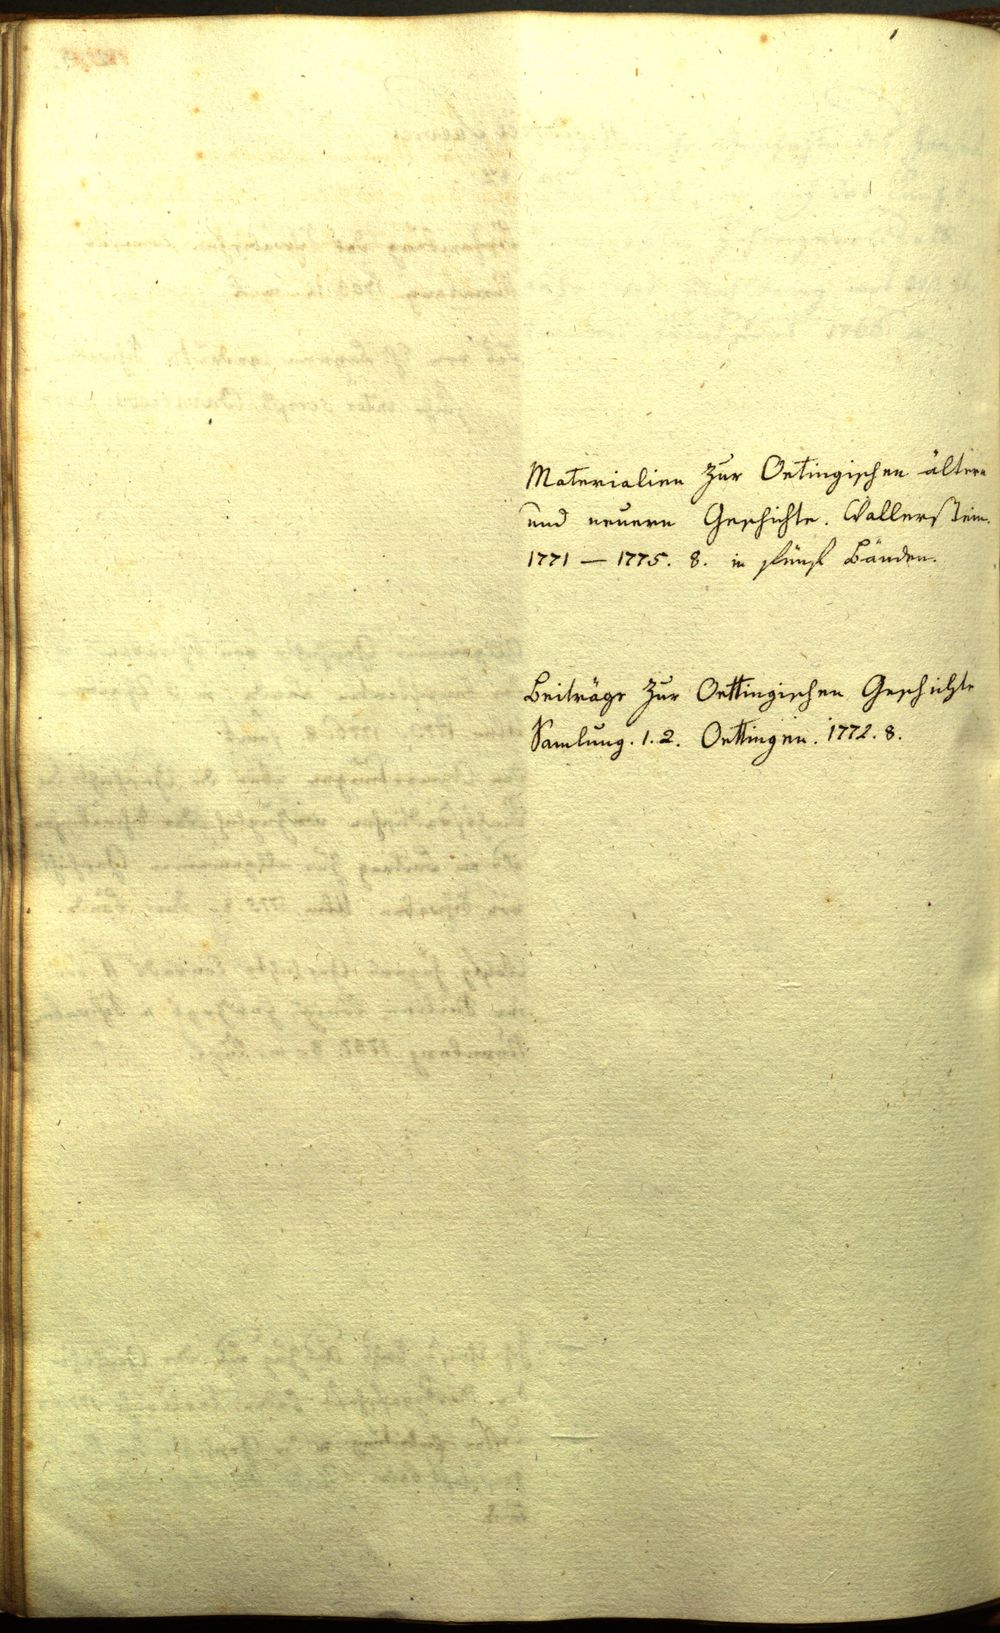 Materialien zur Oetingischen ältern
und neuern Geschichte. Wallerstein.
1771 — 1775. 8. in fünf Bänden.
Beiträge zur Oettingischen Geschichte
Samlung. 1. 2. Oettingen. 1772. 8.